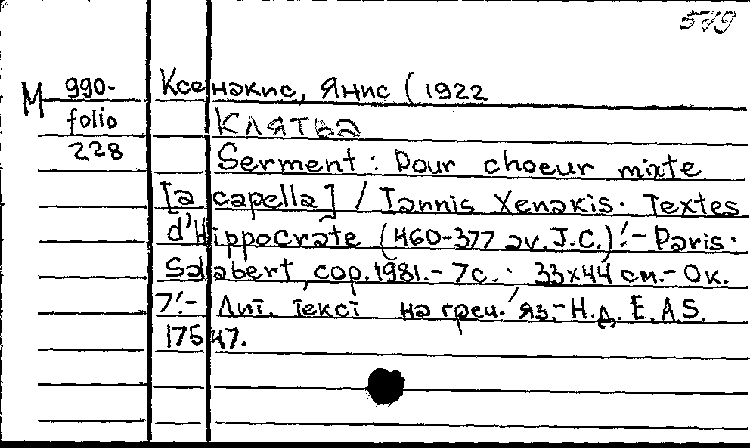 579
Ксенакис, Янис (1922
М 990-
folio
228
Клятва
Serment : Pour choeur mixte
[a capella] / Iannis Xenakis. Textes
d'Hippocrate (460-377 av. J.C.)'.- Paris.
Salabert, cop. 1981.- 7с. : 33x44 см.- Ок.
7'.- Лит. текст на греч. яз.- Н.д. E.A.S.
17547.